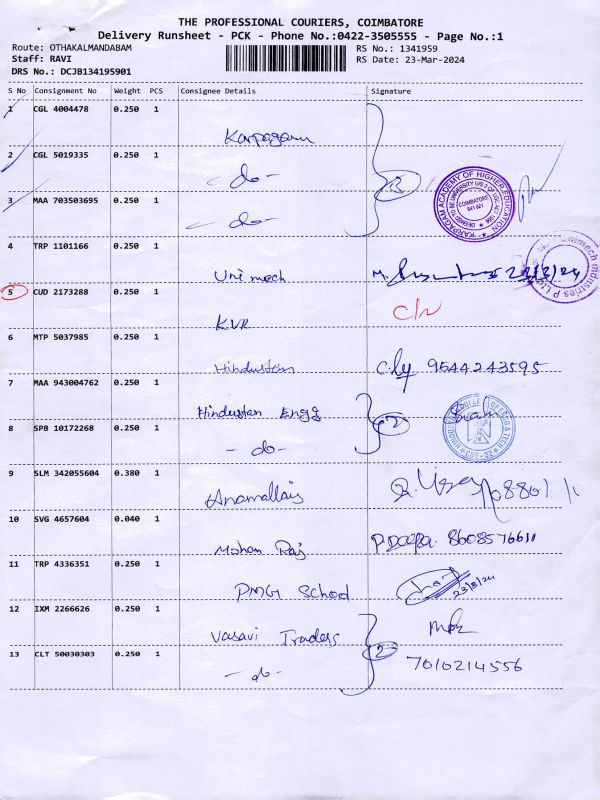 THE PROFESSIONAL COURIERS, COIMBATORE
Delivery Runsheet - PCK - Phone No.:0422-3505555 - Page No.:1
Route: OTHAKALMANDABAM
RS No.: 1341959
Staff: RAVI
RS Date: 23-Mar-2024
DRS No.: DCJB134195901
S No Consignment No Weight PCS Consignee Details Signature
1 CGL 4004478 0.250 1
Karpagam
2 CGL 5019335 0.250 1
- do -
3
KARPAGAM ACADEMY OF HIGHER EDUCATION
COIMBATORE
641 021
3 MAA 703503695 0.250 1
- do -
4 TRP 1101166 0.250 1
Unimech 23/3/24
5 CUD 2173288 0.250 1
KVR
6 MTP 5037985 0.250 1
Hindustan 9544243595
7 MAA 943004762 0.250 1
Hindustan Engg
2
8 SPB 10172268 0.250 1
- do -
9 SLM 342055604 0.380 1
Anamallais
10 SVG 4657604 0.040 1
Mohan Raj P. Deepa. 8608576611
11 TRP 4336351 0.250 1
PMG School 23/3/24
12 IXM 2266626 0.250 1
Vasavi Traders
2
13 CLT 50030303 0.250 1
- do - 7010214556